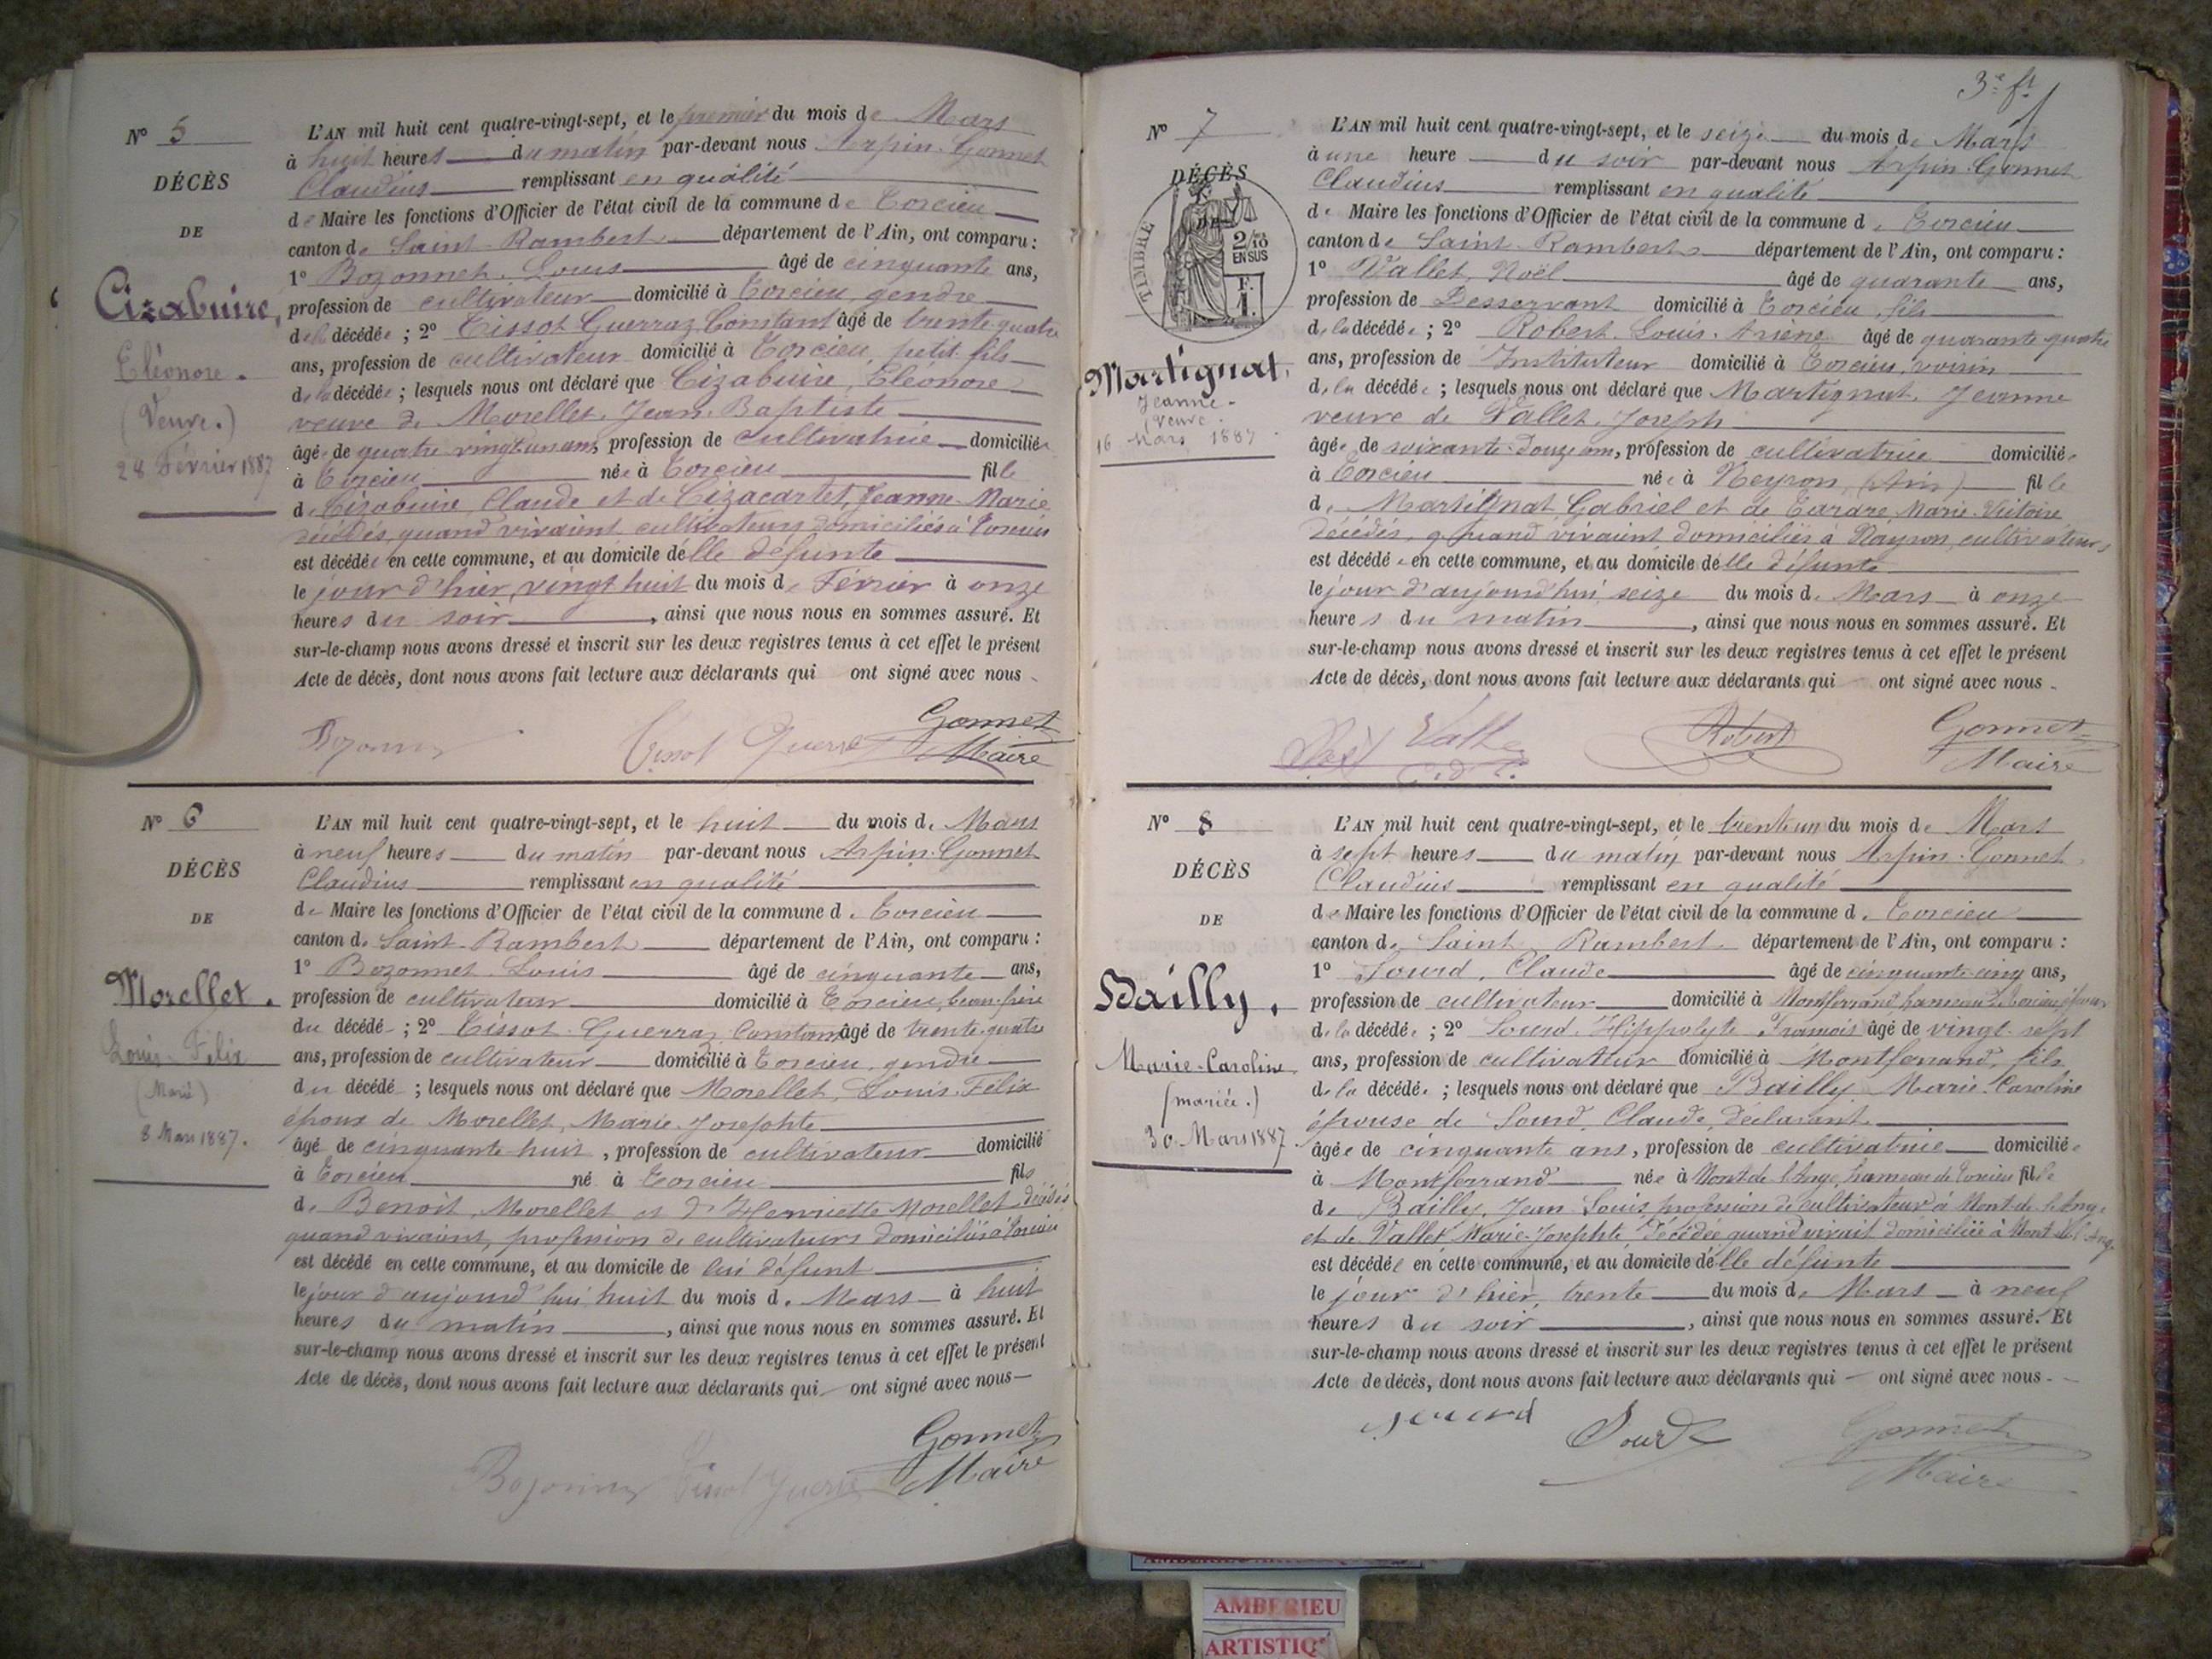 N° 5
DÉCÈS
DE
Cizabuire,
Eléonore.
(Veuve.)
28 Février 1887
L'AN mil huit cent quatre-vingt-sept, et le premier du mois de Mars
à huit heures du matin par-devant nous Arpin-Gonnet
Claudius remplissant en qualité
de Maire les fonctions d'Officier de l'état civil de la commune de Torcieu
canton de Saint-Rambert département de l'Ain, ont comparu :
1° Bozonnet, Louis âgé de cinquante ans,
profession de cultivateur domicilié à Torcieu, gendre
de la décédée ; 2° Tissot Guerraz Constant âgé de trente quatre
ans, profession de cultivateur domicilié à Torcieu, petit-fils
de la décédée ; lesquels nous ont déclaré que Cizabuire, Eléonore
veuve de Morellet, Jean-Baptiste
âgée de quatre vingt un ans, profession de cultivatrice domiciliée
à Torcieu née à Torcieu fille
de Cizabuire, Claude et de Cizacartet, Jeanne-Marie
décédés, quand vivaient cultivateurs domiciliés à Torcieu
est décédée en cette commune, et au domicile de lle défunte
le jour d'hier, vingt huit du mois de Février à onze
heures du soir, ainsi que nous nous en sommes assuré. Et
sur-le-champ nous avons dressé et inscrit sur les deux registres tenus à cet effet le présent
Acte de décès, dont nous avons fait lecture aux déclarants qui ont signé avec nous
Bozonnet Tissot Guerraz Gonnet
Maire
N° 6
DÉCÈS
DE
Morellet.
Louis-Félix
(Marié)
8 Mars 1887.
L'AN mil huit cent quatre-vingt-sept, et le huit du mois de Mars
à neuf heures du matin par-devant nous Arpin-Gonnet
Claudius remplissant en qualité
de Maire les fonctions d'Officier de l'état civil de la commune de Torcieu
canton de Saint-Rambert département de l'Ain, ont comparu :
1° Bozonnet Louis âgé de cinquante ans,
profession de cultivateur domicilié à Torcieu, beau-frère
du décédé ; 2° Tissot-Guerraz Constant âgé de trente-quatre
ans, profession de cultivateur domicilié à Torcieu, gendre
du décédé ; lesquels nous ont déclaré que Morellet, Louis-Félix
époux de Morellet, Marie-Josephte
âgé de cinquante-huit, profession de cultivateur domicilié
à Torcieu né à Torcieu fils
de Benoît Morellet et d'Henriette Morellet décédés
quand vivaient, profession de cultivateurs domiciliés à Torcieu
est décédé en cette commune, et au domicile de lui défunt
le jour d'aujourd'hui huit du mois de Mars à huit
heures du matin, ainsi que nous nous en sommes assuré. Et
sur-le-champ nous avons dressé et inscrit sur les deux registres tenus à cet effet le présent
Acte de décès, dont nous avons fait lecture aux déclarants qui ont signé avec nous
Bozonnet Tissot Guerraz Gonnet
Maire
3e ft
N° 7
DÉCÈS
DE
TIMBRE
2/10
EN SUS
F.
1.
Martignat,
Jeanne.
(Veuve.
16 Mars 1887.
L'AN mil huit cent quatre-vingt-sept, et le seize du mois de Mars
à une heure du soir par-devant nous Arpin-Gonnet
Claudius remplissant en qualité
de Maire les fonctions d'Officier de l'état civil de la commune de Torcieu
canton de Saint-Rambert département de l'Ain, ont comparu :
1° Vallet, Noël âgé de quarante ans,
profession de Desservant domicilié à Torcieu, fils
de la décédée ; 2° Robert Louis-Arsène âgé de quarante quatre
ans, profession de Instituteur domicilié à Torcieu, voisin
de la décédée ; lesquels nous ont déclaré que Martignat, Jeanne
veuve de Vallet, Joseph
âgée de soixante-douze ans, profession de cultivatrice domiciliée
à Torcieu née à Neyron, (Ain) fille
de Martignat Gabriel et de Tarare, Marie-Victoire
décédés, quand vivaient domiciliés à Nayron, cultivateurs
est décédée en cette commune, et au domicile de lle défunte
le jour d'aujourd'hui seize du mois de Mars à onze
heures du matin, ainsi que nous nous en sommes assuré. Et
sur-le-champ nous avons dressé et inscrit sur les deux registres tenus à cet effet le présent
Acte de décès, dont nous avons fait lecture aux déclarants qui ont signé avec nous
Noël Vallet Robert Gonnet
Maire
N° 8
DÉCÈS
DE
Bailly.
Marie-Caroline
(mariée.)
30 Mars 1887
L'AN mil huit cent quatre-vingt-sept, et le trente un du mois de Mars
à sept heures du matin par-devant nous Arpin-Gonnet
Claudius remplissant en qualité
de Maire les fonctions d'Officier de l'état civil de la commune de Torcieu
canton de Saint-Rambert département de l'Ain, ont comparu :
1° Sourd, Claude âgé de cinquante cinq ans,
profession de cultivateur domicilié à Montferrand, hameau de Torcieu, époux
de la décédée ; 2° Sourd Hippolyte François âgé de vingt-sept
ans, profession de cultivateur domicilié à Montferrand, fils
de la décédée ; lesquels nous ont déclaré que Bailly Marie-Caroline
épouse de Sourd, Claude, déclarant
âgée de cinquante ans, profession de cultivatrice domiciliée
à Montferrand née à Mont-de-l'Ange, hameau de Torcieu fille
de Bailly, Jean-Louis, profession de cultivateur à Mont-de-l'Ange
et de Vallet Marie-Josephte, décédée quand vivait domiciliée à Mont-de-l'Ange
est décédée en cette commune, et au domicile de lle défunte
le jour d'hier, trente du mois de Mars à neuf
heures du soir, ainsi que nous nous en sommes assuré. Et
sur-le-champ nous avons dressé et inscrit sur les deux registres tenus à cet effet le présent
Acte de décès, dont nous avons fait lecture aux déclarants qui ont signé avec nous
Sourd Sourd Gonnet
Maire
AMBERIEU
ARTISTIQ